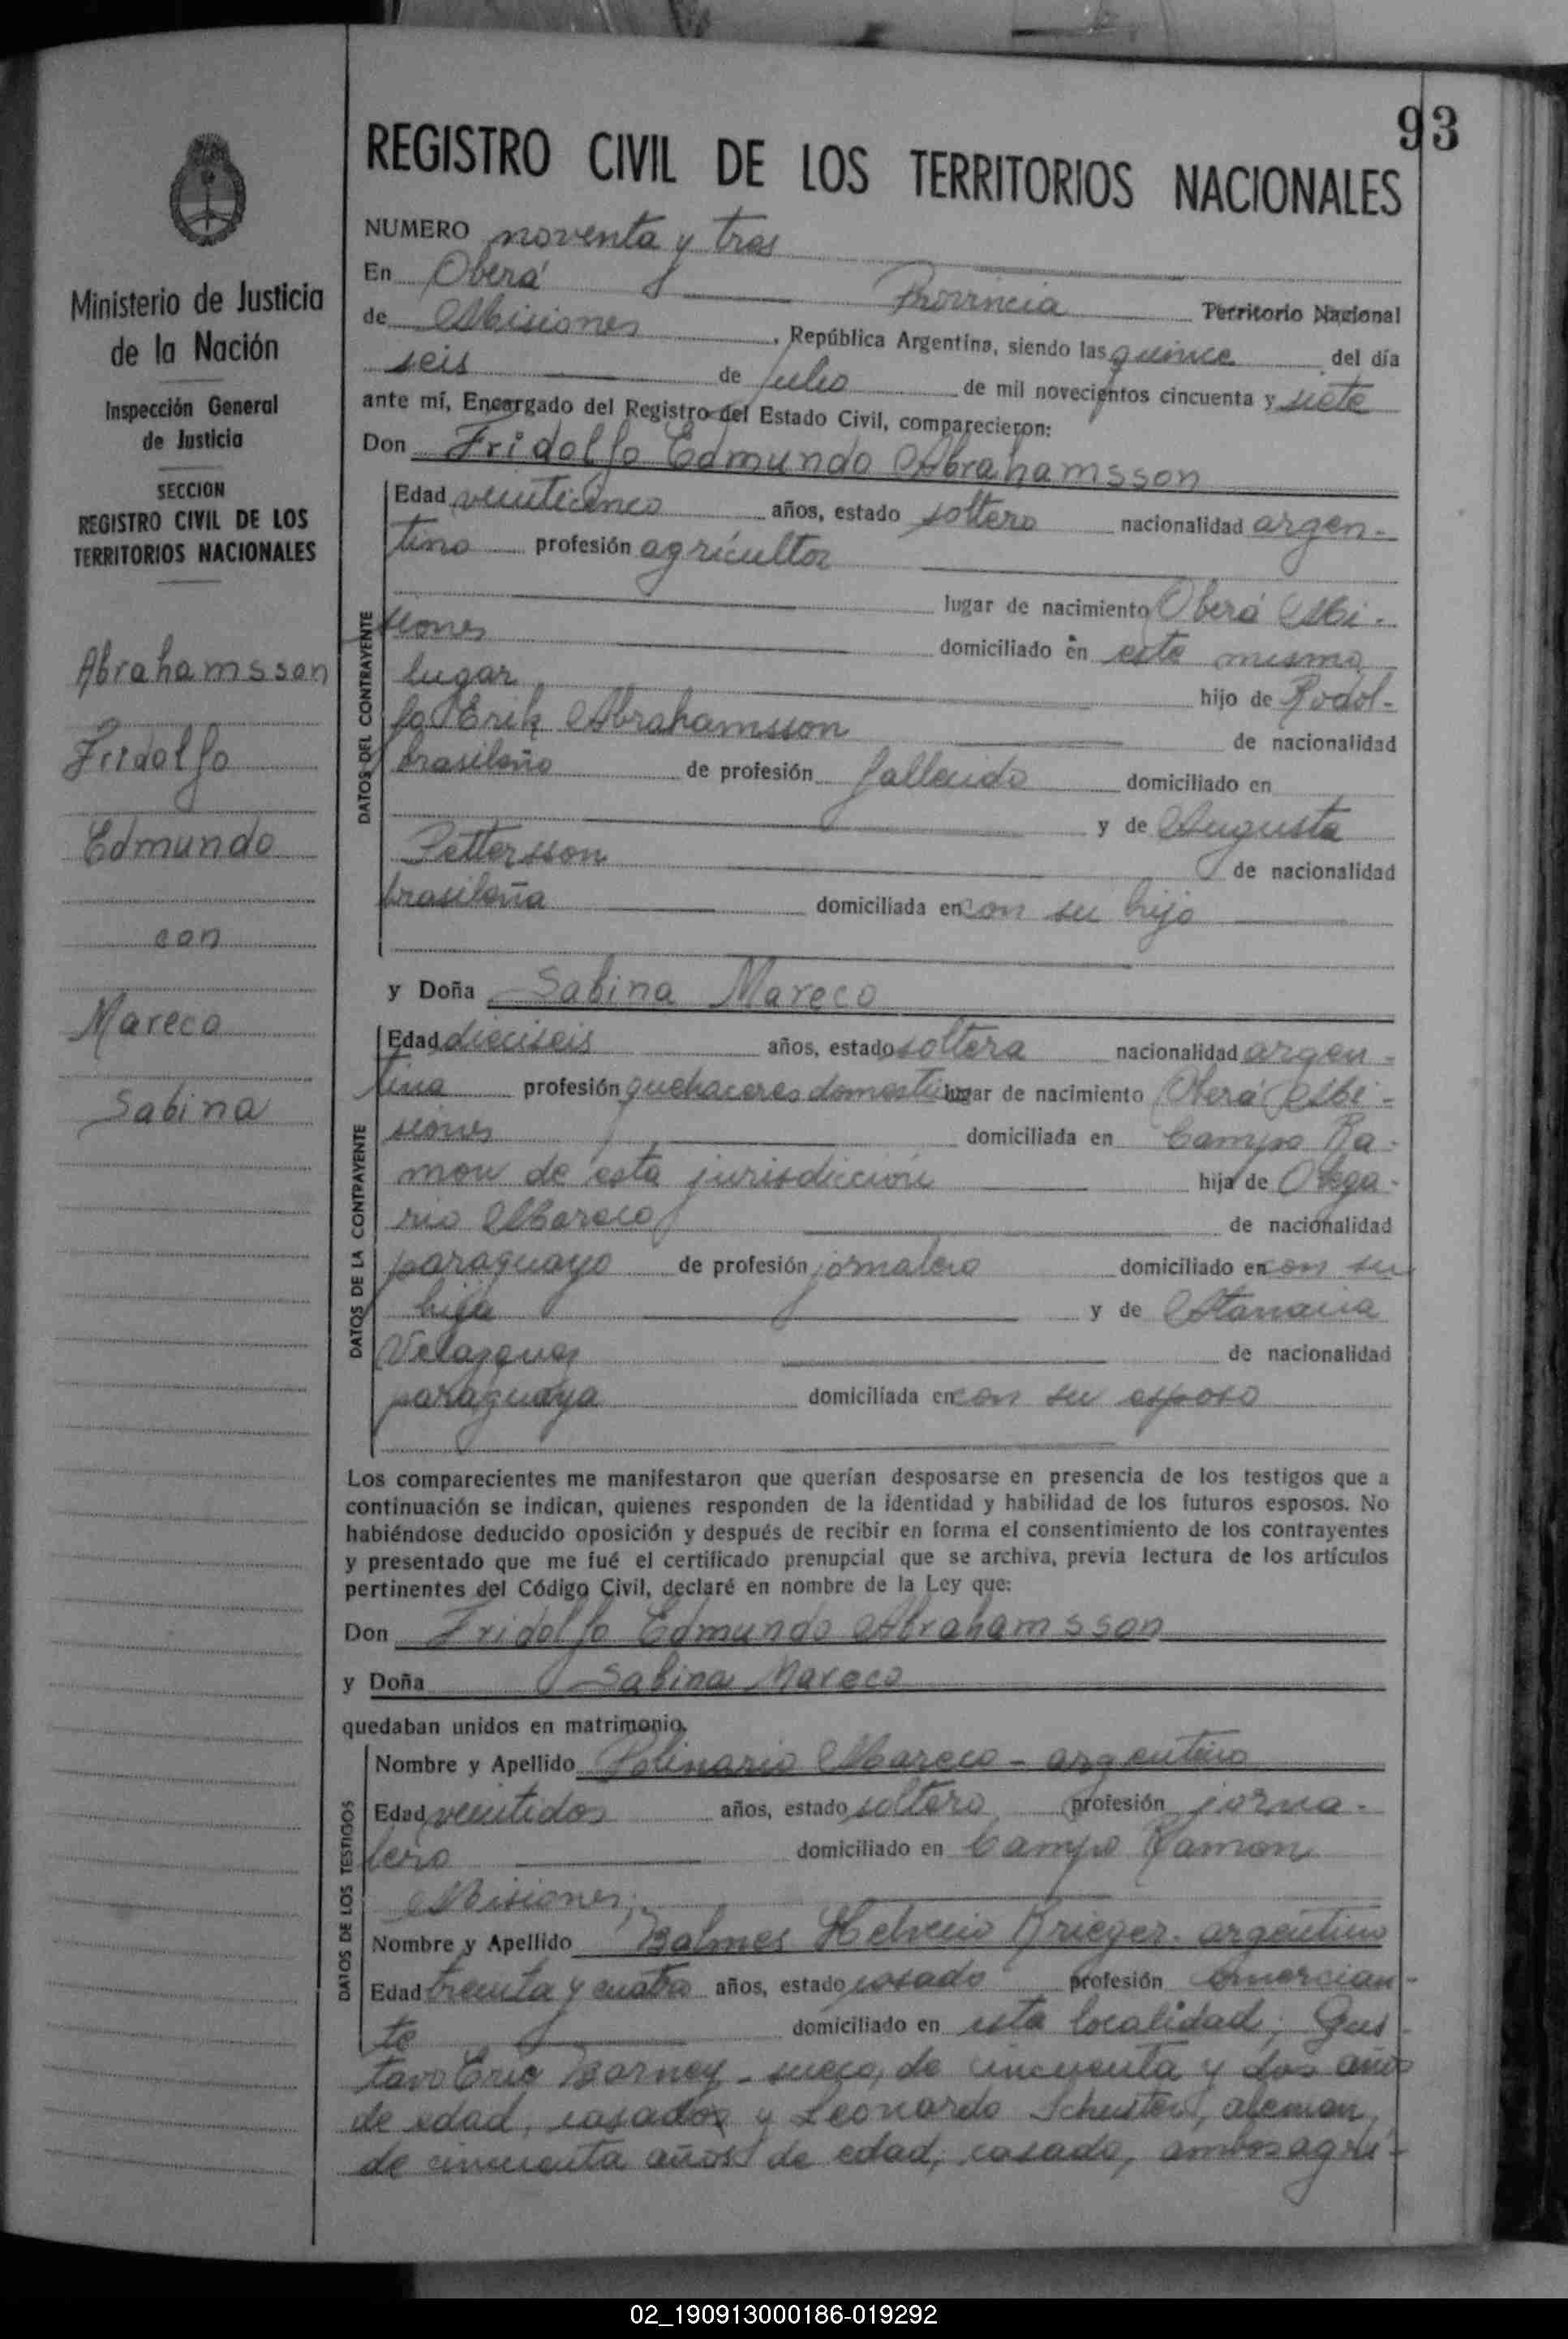 93
REGISTRO CIVIL DE LOS TERRITORIOS NACIONALES
Ministerio de Justicia
de la Nación
Inspección General
de Justicia
SECCION
REGISTRO CIVIL DE LOS
TERRITORIOS NACIONALES
Abrahamsson
Fridolfo
Edmundo
con
Mareco
Sabina
NUMERO noventa y tres
En Oberá Provincia Territorio Nacional
de Misiones, República Argentina, siendo las quince del día
seis de Julio de mil novecientos cincuenta y siete
ante mí, Encargado del Registro del Estado Civil, comparecieron:
Don Fridolfo Edmundo Abrahamsson
DATOS DEL CONTRAYENTE
Edad veinticinco años, estado soltero nacionalidad argen-
tino profesión agricultor
lugar de nacimiento Oberá Mi-
siones domiciliado en este mismo
lugar hijo de Rodol-
fo Erik Abrahamsson de nacionalidad
brasileño de profesión fallecido domiciliado en
y de Augusta
Pettersson de nacionalidad
brasileña domiciliada en con su hijo
y Doña Sabina Mareco
DATOS DE LA CONTRAYENTE
Edad dieciseis años, estado soltera nacionalidad argen-
tina profesión quehaceres domesticos lugar de nacimiento Oberá Mi-
siones domiciliada en Campo Ra-
mon de esta jurisdiccion hija de
rio Mareco de nacionalidad
paraguayo de profesión jornalero domiciliado en con su
hija y de
Velazquez de nacionalidad
paraguaya domiciliada en con su esposo
Los comparecientes me manifestaron que querían desposarse en presencia de los testigos que a
continuación se indican, quienes responden de la identidad y habilidad de los futuros esposos. No
habiéndose deducido oposición y después de recibir en forma el consentimiento de los contrayentes
y presentado que me fué el certificado prenupcial que se archiva, previa lectura de los artículos
pertinentes del Código Civil, declaré en nombre de la Ley que:
Don Fridolfo Edmundo Abrahamsson
y Doña Sabina Mareco
quedaban unidos en matrimonio.
DATOS DE LOS TESTIGOS
Nombre y Apellido Polinario Mareco - argentino
Edad veintidos años, estado soltero profesión jorna-
lero domiciliado en Campo Ramon
Misiones;
Nombre y Apellido Balmes Helvecio Krieger. argentino
Edad treinta y cuatro años, estado casado profesión comercian-
te domiciliado en esta localidad; Gus-
tavo Eric Barney - sueco, de cincuenta y dos años
de edad, casado y Leonardo Schuster, aleman,
de cincuenta años de edad, casado, ambos agri-
02_190913000186-019292